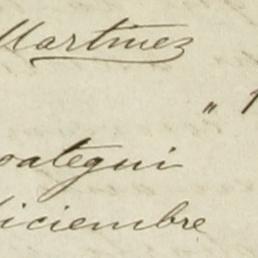 Martinez
"
oategui
diciembre